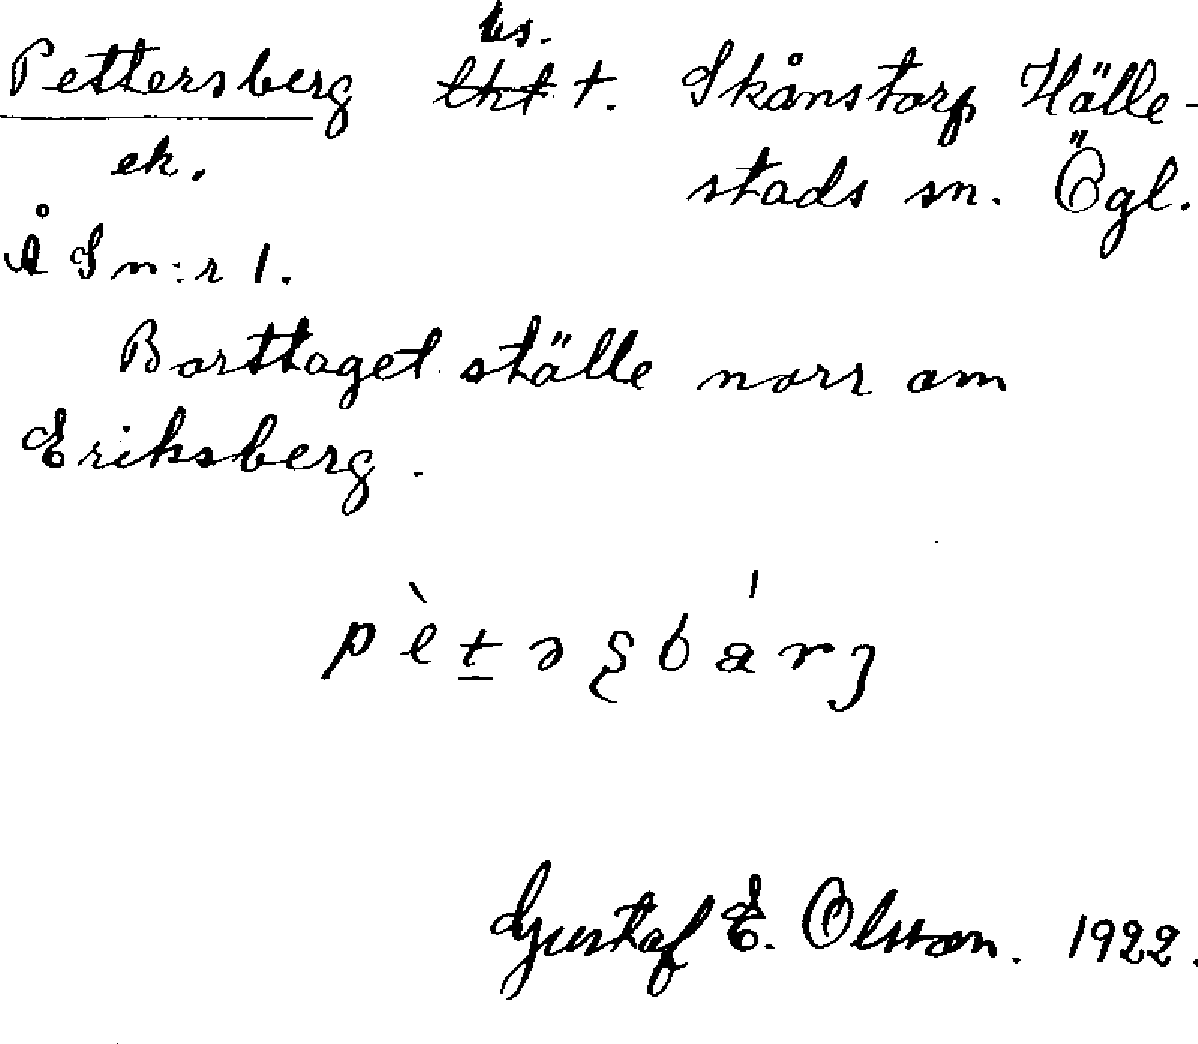 bs.
Pettersberg lht †. Skånstorp Hälle-
ek. stads sn. Ögl.
ÅS n:r 1.
Borttaget ställe norr om
Eriksberg.
Gustaf E. Olsson. 1922.